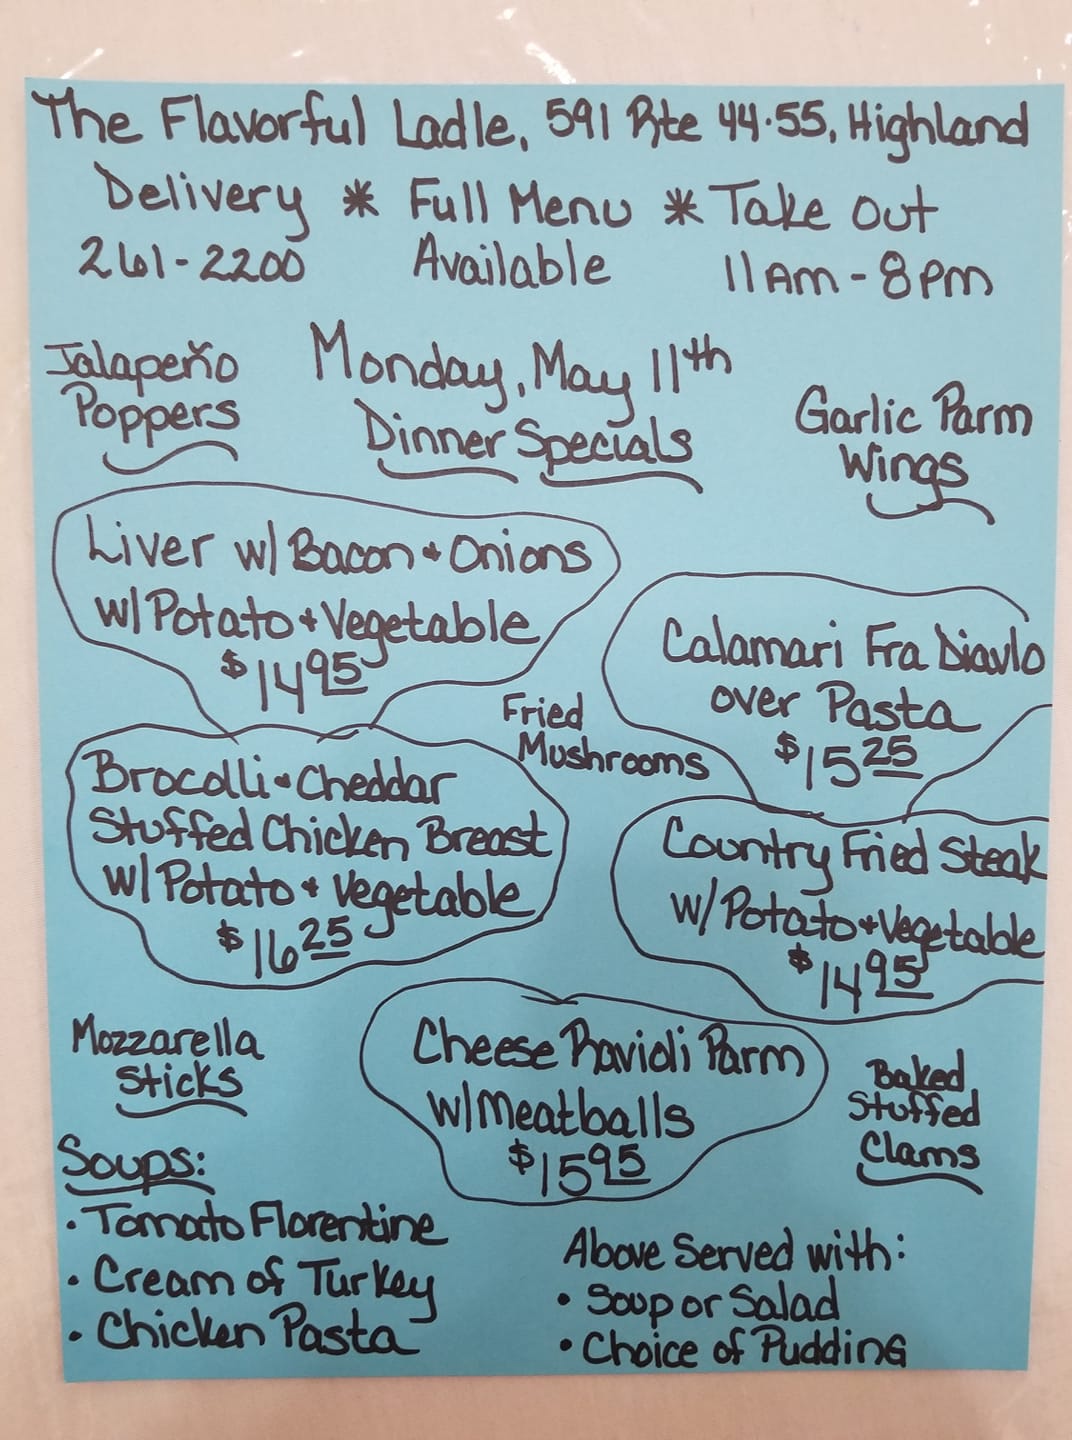 The Flavorful Ladle, 591 Rte 44·55, Highland
Delivery * Full Menu * Take Out
261-2200 Available 11Am-8pm
Monday, May 11th
Dinner Specials
Jalapeño
Poppers
Garlic Parm
Wings
Liver w/ Bacon + Onions
w/ Potato + Vegetable
$14 95
Calamari Fra Diavlo
over Pasta
$15 25
Fried
Mushrooms
Brocolli + Cheddar
Stuffed Chicken Breast
w/ Potato + Vegetable
$16 25
Country Fried Steak
w/ Potato + Vegetable
$14 95
Mozzarella
Sticks
Cheese Ravioli Parm
w/ Meatballs
$15 95
Baked
Stuffed
Clams
Soups:
· Tomato Florentine
· Cream of Turkey
· Chicken Pasta
Above Served with:
· Soup or Salad
· Choice of Pudding